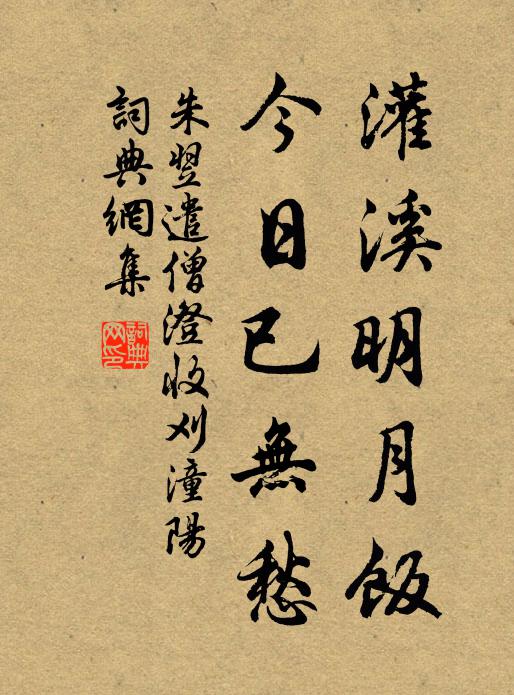 灌溪明月飯
今日已無愁
朱翌遣僧澄收刈潼陽
詞典網集
詞典网印